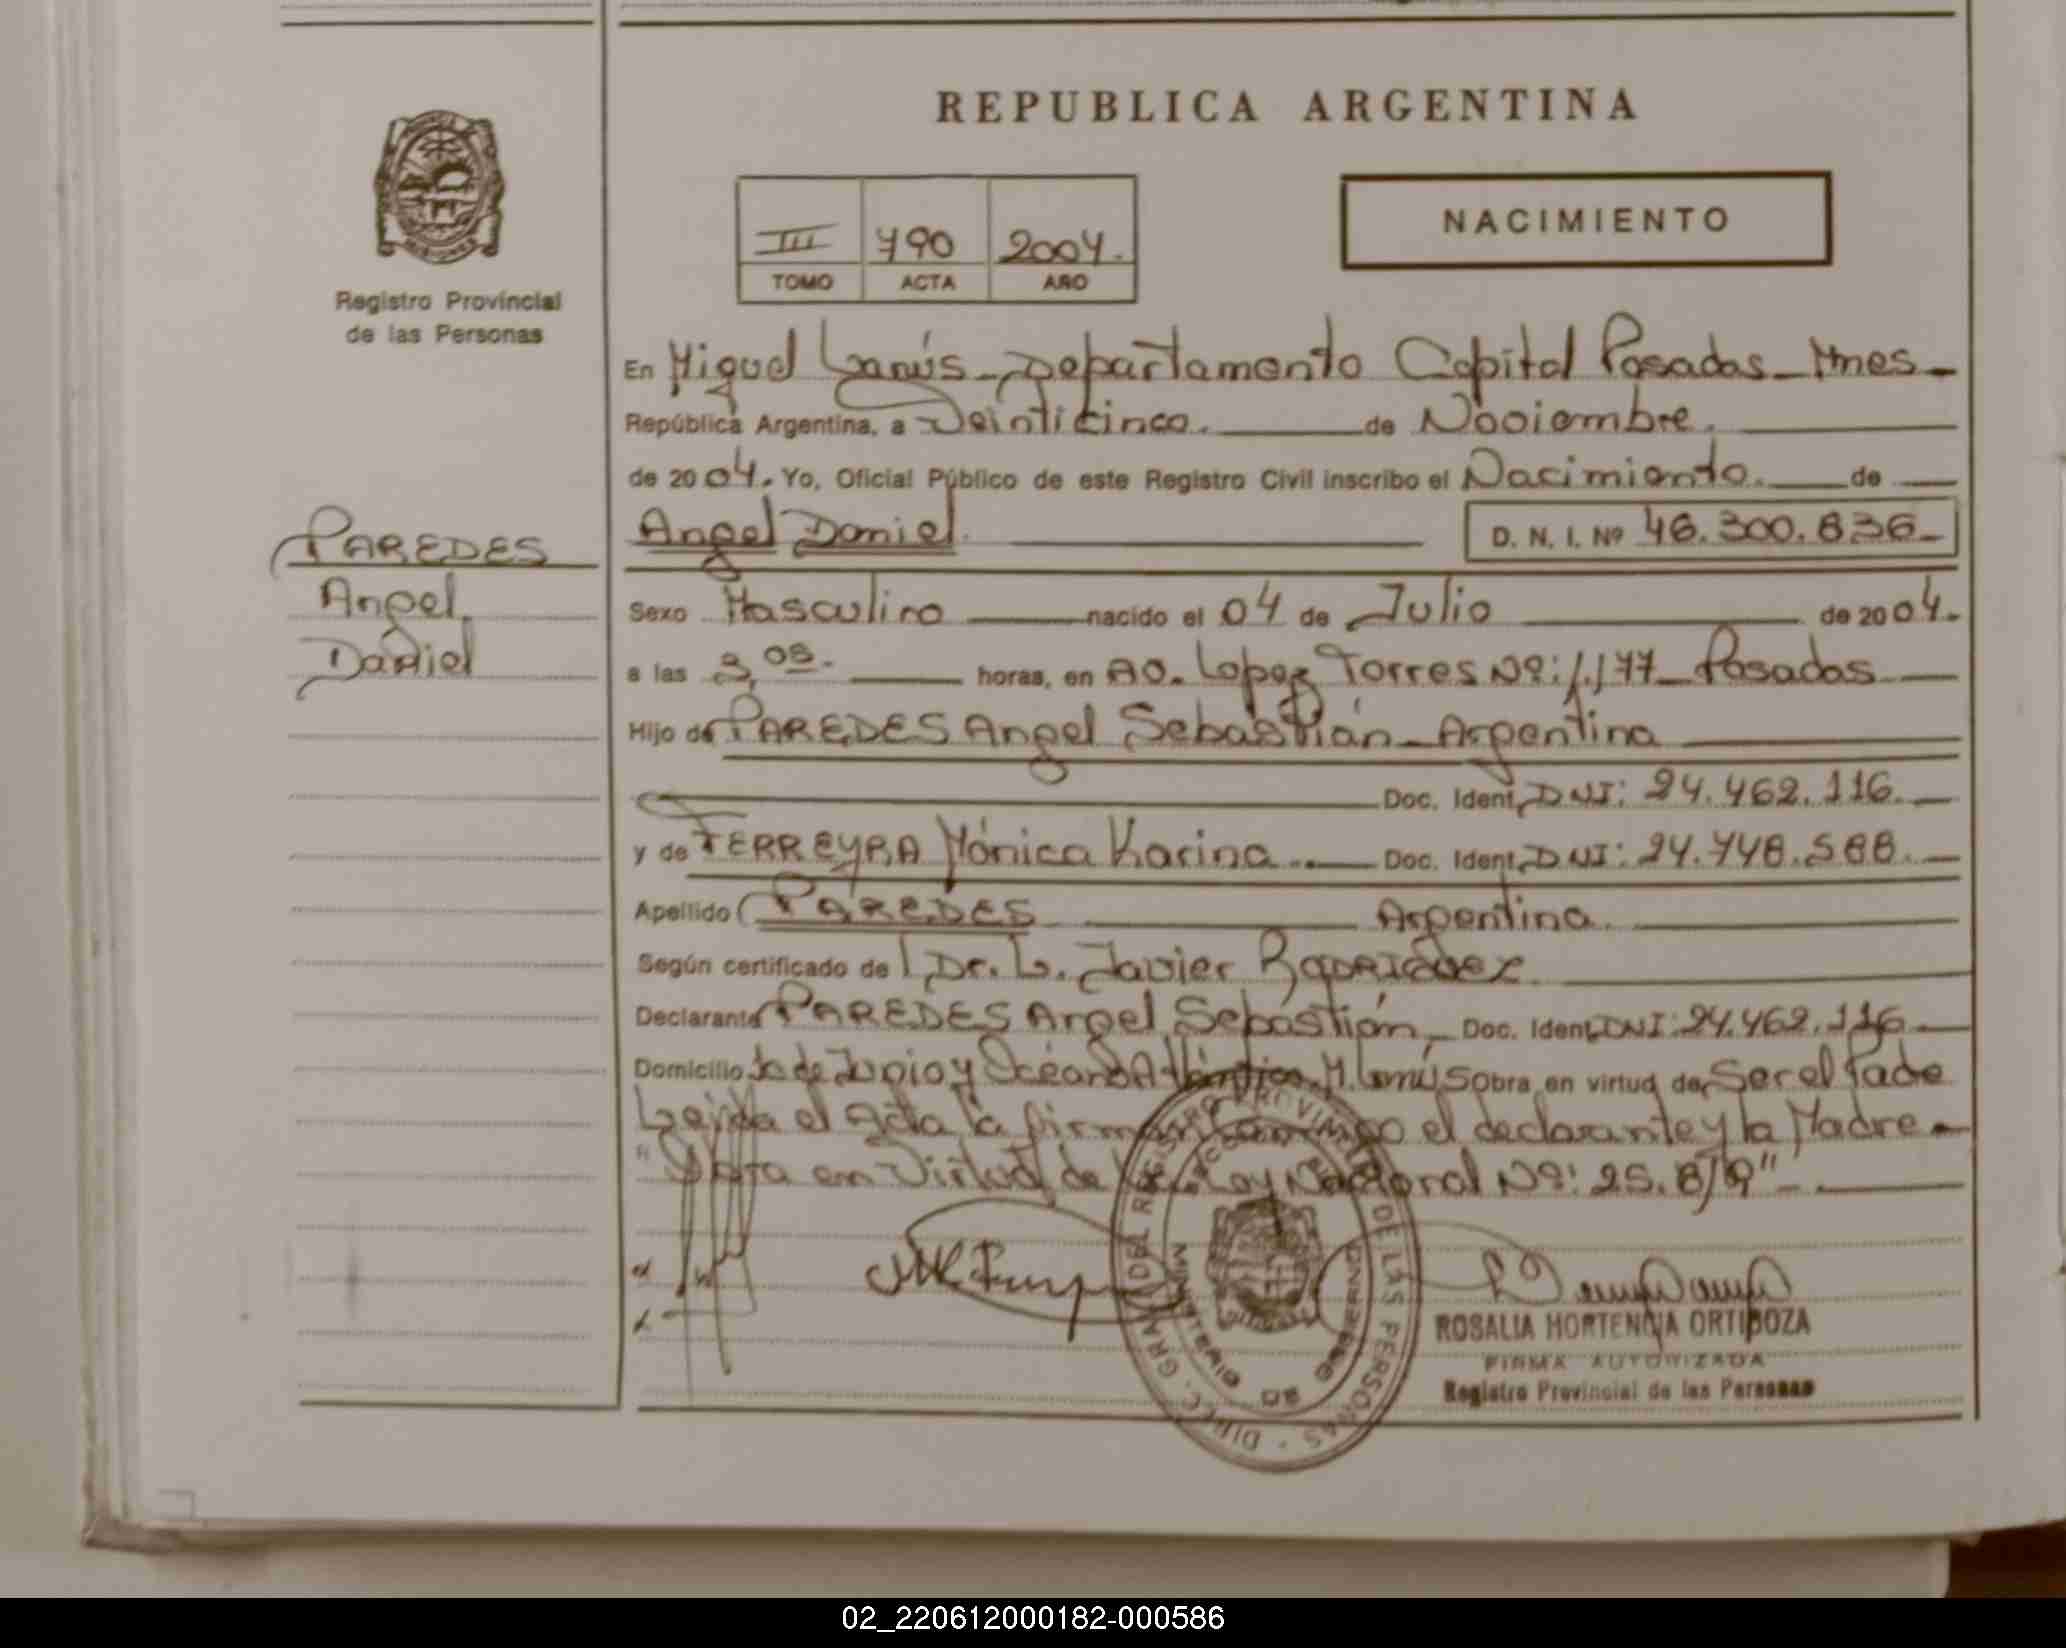 REPUBLICA ARGENTINA
NACIMIENTO
III 790 2004.
TOMO ACTA AÑO
Registro Provincial
de las Personas
En Miguel Lanús - Departamento Capital Posadas - Mnes -
República Argentina, a Veinticinco. de Noviembre.
de 2004. Yo, Oficial Público de este Registro Civil inscribo el Nacimiento. de
Angel Daniel. D. N. I. Nº 46.300.836-
PAREDES
Angel
Daniel
Sexo Masculino nacido el 04 de Julio de 2004.
a las 3,05. horas, en Av. Lopez Torres Nº: 1.177 - Posadas
Hijo de PAREDES Angel Sebastián - Argentina
Doc. Ident. DNI: 24.462.116.
y de FERREYRA Mónica Karina.. Doc. Ident. DNI: 24.748.588.
Apellido PAREDES Argentina.
Según certificado de Dr. L. Javier RODRIGUEZ
Declarante PAREDES Angel Sebastián - Doc. Ident. DNI: 24.462.116
Domicilio de Junio y Océano Atlántico. M. Lanús Obra en virtud de Ser el Padre
Leida el Acta la firman conmigo el declarante y la Madre -
" en Virtud de la Ley Nacional Nº: 25.819" -
DIREC. GRAL. DEL REGISTRO PROVINCIAL DE LAS PERSONAS
MINISTERIO DE GOBIERNO
MISIONES
ROSALIA HORTENCIA ORTIGOZA
FIRMA AUTORIZADA
Registro Provincial de las Personas
02_220612000182-000586